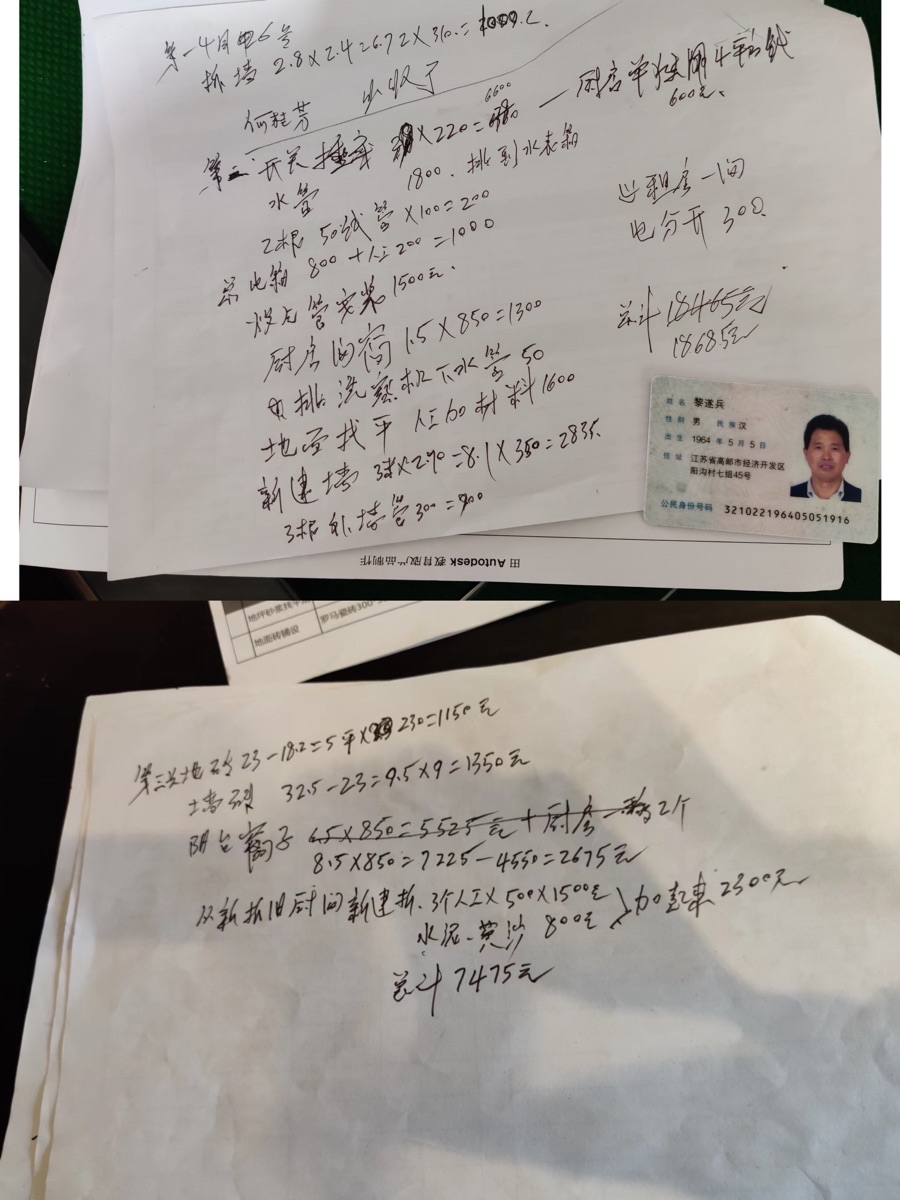 第一4月电6号
拆墙 2.8×2.4=6.72×310.=
何桂芳 少收了
第二 开关插座 ×220=6600 — 厨房单独用4平方线
600元.
水管 1800. 排到水表箱
2根 50线管×100=200
电箱 800+人工200=1000
煤气管安装1500元.
厨房间窗 1.5×850=1300
排洗衣机下水管50
地面找平 人工加材料1600
新建墙 ×2.70=8.1×350=2835.
3根 管300=900
出租房一间
电分开 300.
总计 18465元
18685元
姓名 黎遂兵
性别 男 民族 汉
出生 1964 年 5 月 5 日
住址 江苏省高邮市经济开发区
阳沟村七组45号
公民身份号码 321022196405051916
由 Autodesk 教育版产品制作
地坪砂浆找平
地面砖铺设 罗马瓷砖300
第三类地砖 23-18.2=5平× 230=1150元
墙砖 32.5-23=9.5×9=1350元
阳台窗子 6.5×850=5525元+厨房 2个
8.5×850=7225-4550=2675元
从新拆旧厨间新建拆. 3个人工×500×1500元
水泥.黄沙 800元
加起来2300元
总计 7475元